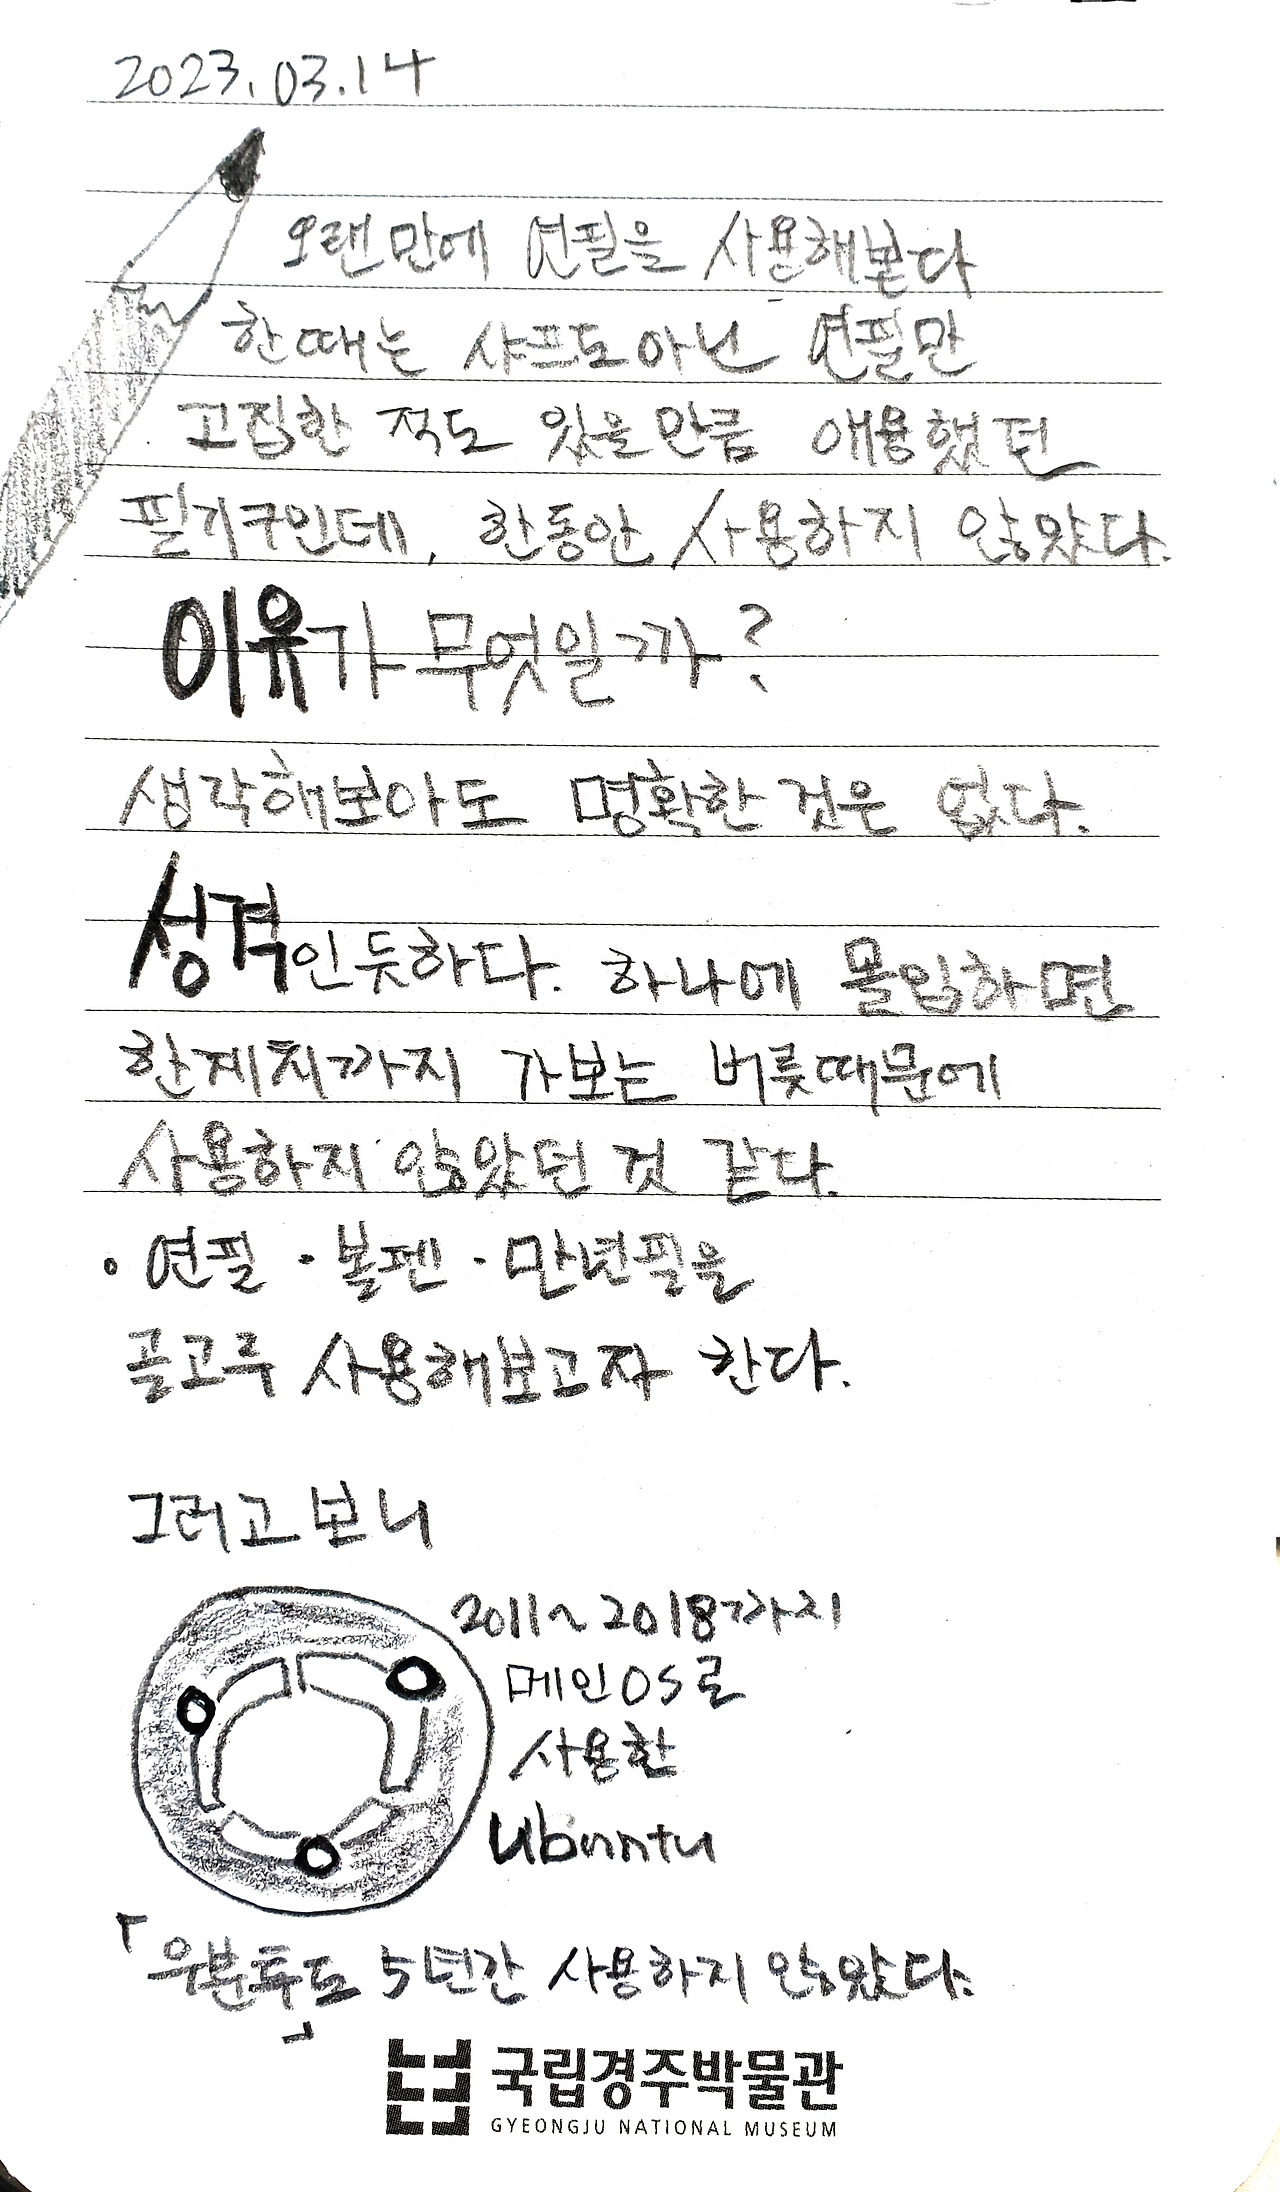 2023.03.14
오랜만에 연필을 사용해본다
한때는 샤프도아닌 연필만
고집한 적도 있을만큼 애용했던
필기구인데, 한동안 사용하지 않았다.
이유가 무엇일까?
생각해보아도 명확한 것은 없다.
성격인듯하다. 하나에 몰입하면
한계치까지 가보는 버릇때문에
사용하지 않았던 것 같다.
• 연필 · 볼펜 · 만년필을
골고루 사용해보고자 한다.
그러고보니
2011~2018까지
메인OS로
사용한
Ubunntu
「우분투도 5년간 사용하지 않았다.」
국립경주박물관
GYEONGJU NATIONAL MUSEUM